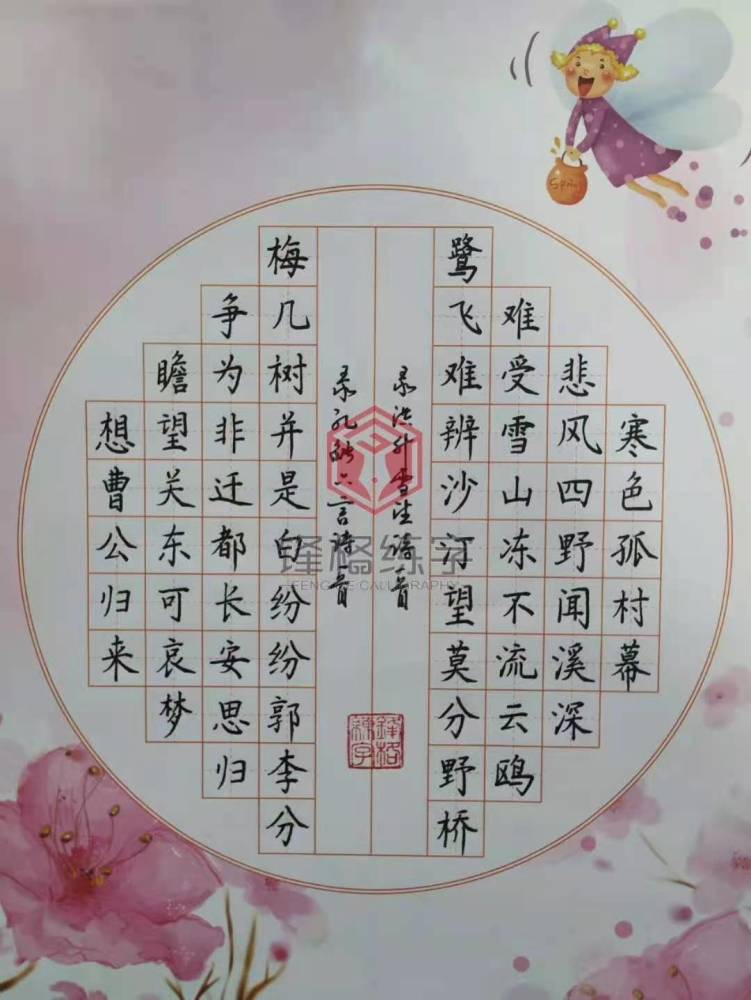 寒色孤村幕
悲风四野闻溪深
难受雪山冻不流云鸥
鹭飞难辨沙汀望莫分野桥
录洪升雪望诗一首
录孔融六言诗一首
梅几树并是白纷纷郭李分
争为非迁都长安思归
瞻望关东可哀梦
想曹公归来
锋格练字
锋格练字
FENGGE CALLIGRAPHY
Spring